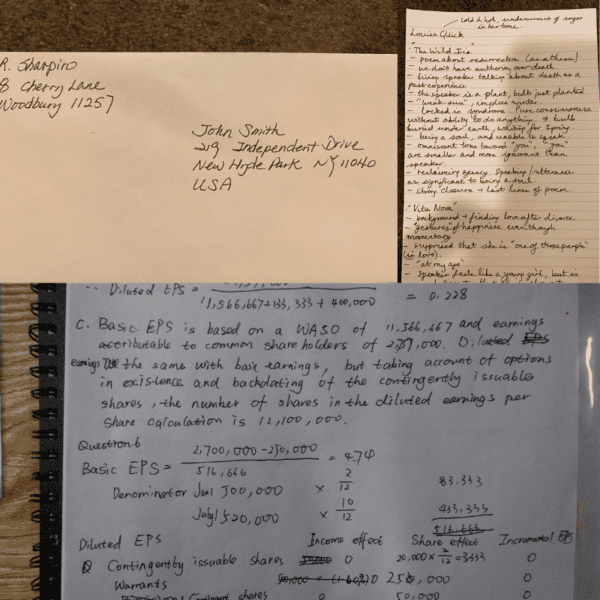 R. Sharpiro
8 Cherry Lane
Woodbury 11257
John Smith
219 Independent Drive
New Hyde Park NY 11040
USA
cold & hot, undercurrent of anger
in her tone.
Louise Glück
"The Wild Iris"
- poem about resurrection
- we don't have authority over death
- living speaker talking about death as a
past experience
- the speaker is a plant, bulb just planted
- "weak sun", implies winter
- locked in syndrome. Pure consciousness
without ability to do anything. A bulb
buried under earth, waiting for spring.
- being a soul, and unable to speak
- omniscient tone toward "you", "you"
are smaller and more ignorant than
speaker.
- reclaiming agency. Speaking/utterance
as significant to being a soul.
- strong closure → last lines of poem
"Vita Nova"
- background → finding love after divorce
- "gestures" of happiness even though
momentary
- surprised that she is "one of those people"
(in love).
- "at my age"
- speaker feels like a young girl, but is
∴ Diluted EPS =
11,566,667 + 133,333 + 400,000 = 0.228
C. Basic EPS is based on a WASO of 11,566,667 and earnings
attributable to common share holders of 2,759,000. Diluted EPS
earnings the same with basic earnings, but taking account of options
in existence and backdating of the contingently issuable
shares, the number of shares in the diluted earnings per
share calculation is 12,100,000.
Question 6
Basic EPS = 2,700,000 - 250,000 / 516,666 = 4.74
Denominator Jan1 500,000 × 2/12 83.333
July1 520,000 × 10/12 433.333
516.666
Diluted EPS Income effect Share effect Incremental EPS
Contingently issuable shares 0 20,000 × 2/12 = 3333 0
Warrants 0 250,000 0
Contingent shares 0 50,000 0